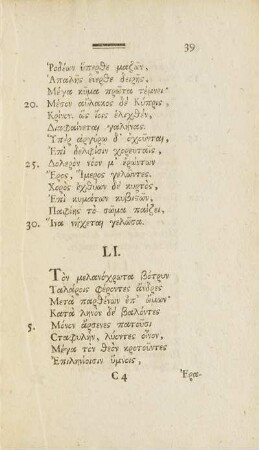 39
Ῥοδέων ὕπερθε μαζῶν,
Ἁπαλῆς ἔνερθε δειρῆς,
Μέγα κῦμα πρῶτα τέμνει·
20. Μέσον αὔλακος δὲ Κύπρις,
Κρίνον ὡς ἴοις ἑλιχθὲν,
Διαφαίνεται γαλήνας.
Ὑπὲρ ἀργύρω δ' ὀχοῦνται,
Ἐπὶ δελφῖσιν χορευταῖς,
25. Δολερὸν νόον μ' ἐρώντων
Ἔρος, Ἵμερος γελώντες.
Χορὸς ἰχθύων δὲ κυρτὸς,
Ἐπὶ κυμάτων κυβιστῶν,
Παφίης τὸ σῶμα παίζει,
30. Ἵνα νήχεται γελῶσα.
LI.
Τὸν μελανόχρωτα βότρυν
Ταλάροις φέροντες ἄνδρες
Μετὰ παρθένων ἐπ' ὤμων·
Κατὰ ληνὸν δὲ βαλόντες
5. Μόνον ἄρσενες πατοῦσι
Σταφυλὴν, λύοντες οἶνον,
Μέγα τὸν θεὸν κροτοῦντες
Ἐπιληνίοισιν ὕμνοις,
C 4 Ἐρα-